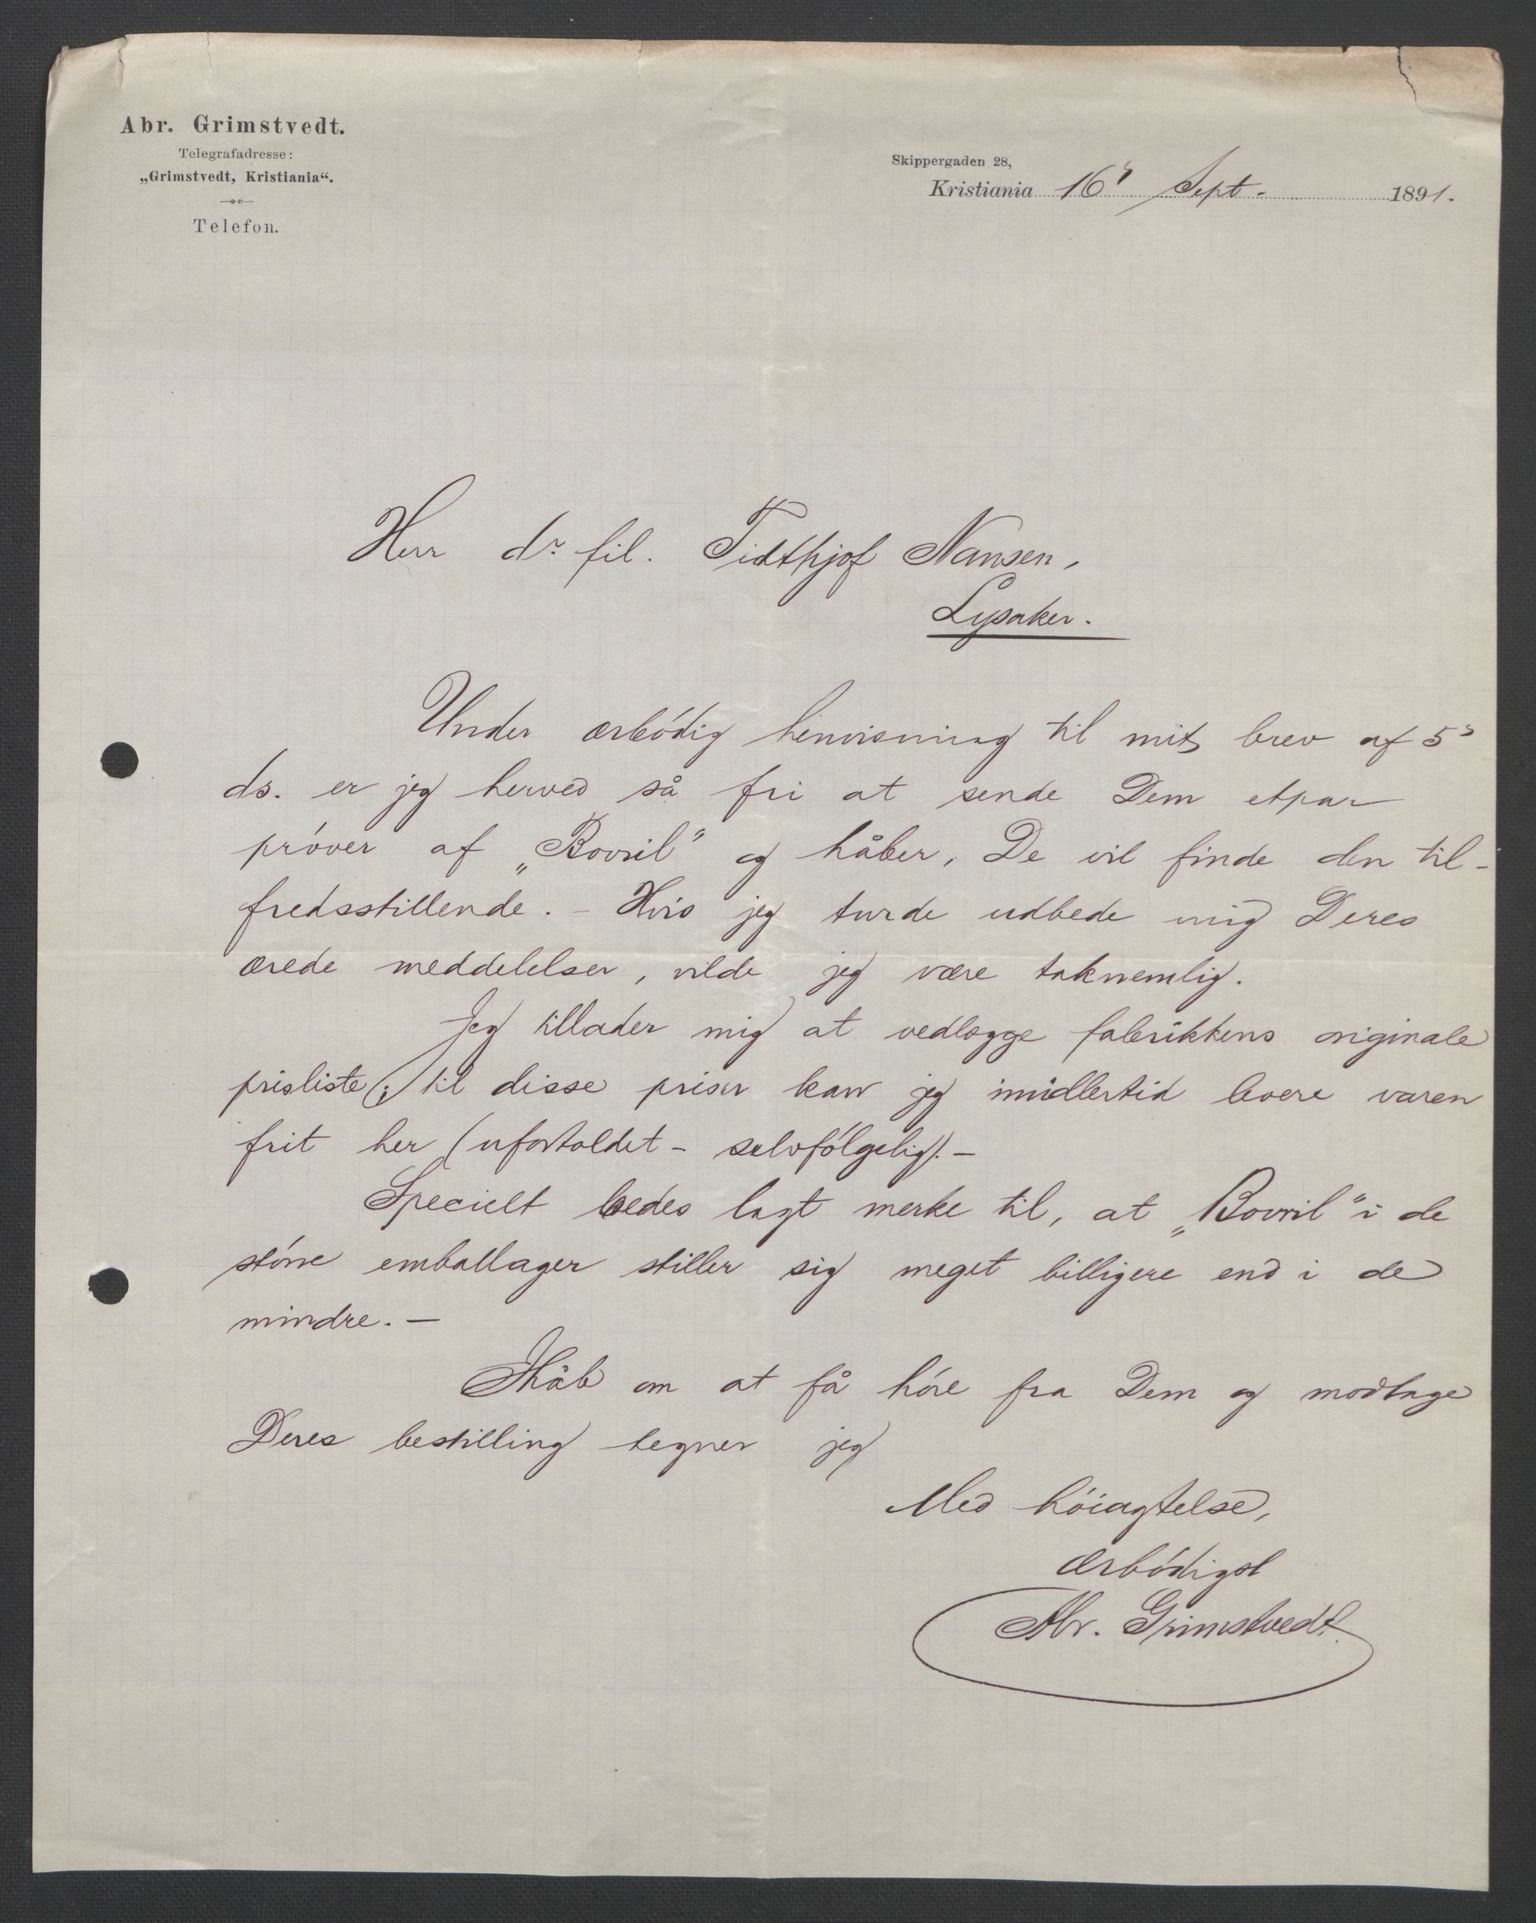 Abr. Grimstvedt.
Telegrafadresse:
„Grimstvedt, Kristiania“.
Telefon.
Skippergaden 28,
Kristiania 16' Sept. 1891.
Herr dr. fil. Fidthjof Nansen,
Lysaker.
Under ærbódig henvisning til mit brev af 5'
ds. er jeg herved så fri at sende Dem etpar
próver af „Bovril“ og håber, De vil finde den til-
fredsstillende. - Hvis jeg turde udbede mig Deres
ærede meddelelser, vilde jeg være taknemlig.
Jeg tillader mig at vedlægge fabrikkens originale
prisliste; til disse priser kan jeg imidlertid levere varen
frit her (ufortoldet - selvfólgelig). -
Specielt bedes lagt merke til, at „Bovril“ i de
stórre emballager stiller sig meget billigere end i de
mindre. -
I håb om at få hóre fra Dem og modtage
Deres bestilling tegner jeg
Med hóiagtelse,
ærbódigst
Abr. Grimstvedt.